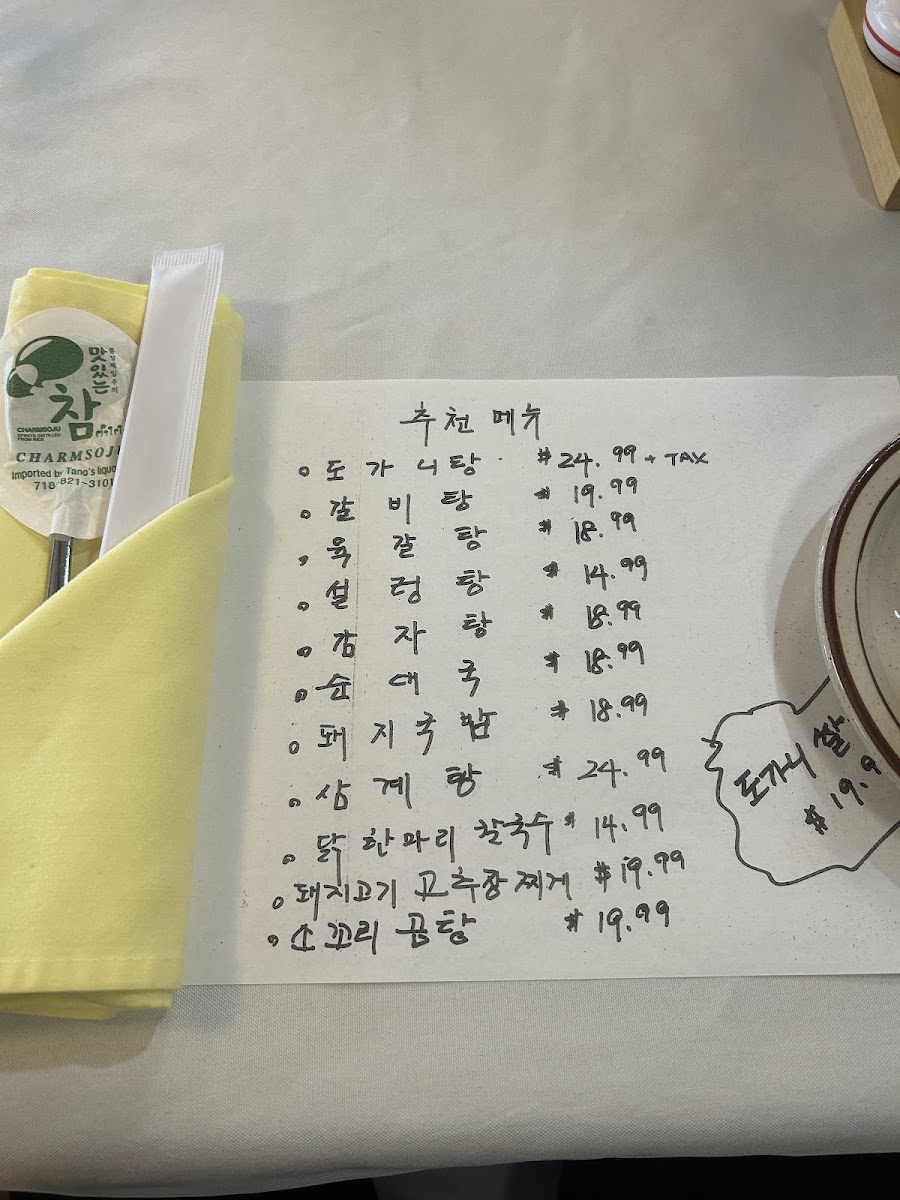 맛있는
참
CHARMSOJU
SPIRITS DISTILLED
FROM RICE
CHARMSOJU
Imported by Tang's liquo
718 821-3101
추천 메뉴
도 가 니 탕 $24.99 + TAX
갈 비 탕 $ 19.99
육 갈 탕 $ 18.99
설 렁 탕 $ 14.99
감 자 탕 $ 18.99
순 대 국 $ 18.99
돼 지 국 밥 $ 18.99
삼 계 탕 $ 24.99
닭 한마리 칼국수 $ 14.99
돼지고기 고추장 찌게 $ 19.99
소꼬리 곰탕 $ 19.99
도가니 쌀
$ 19.9